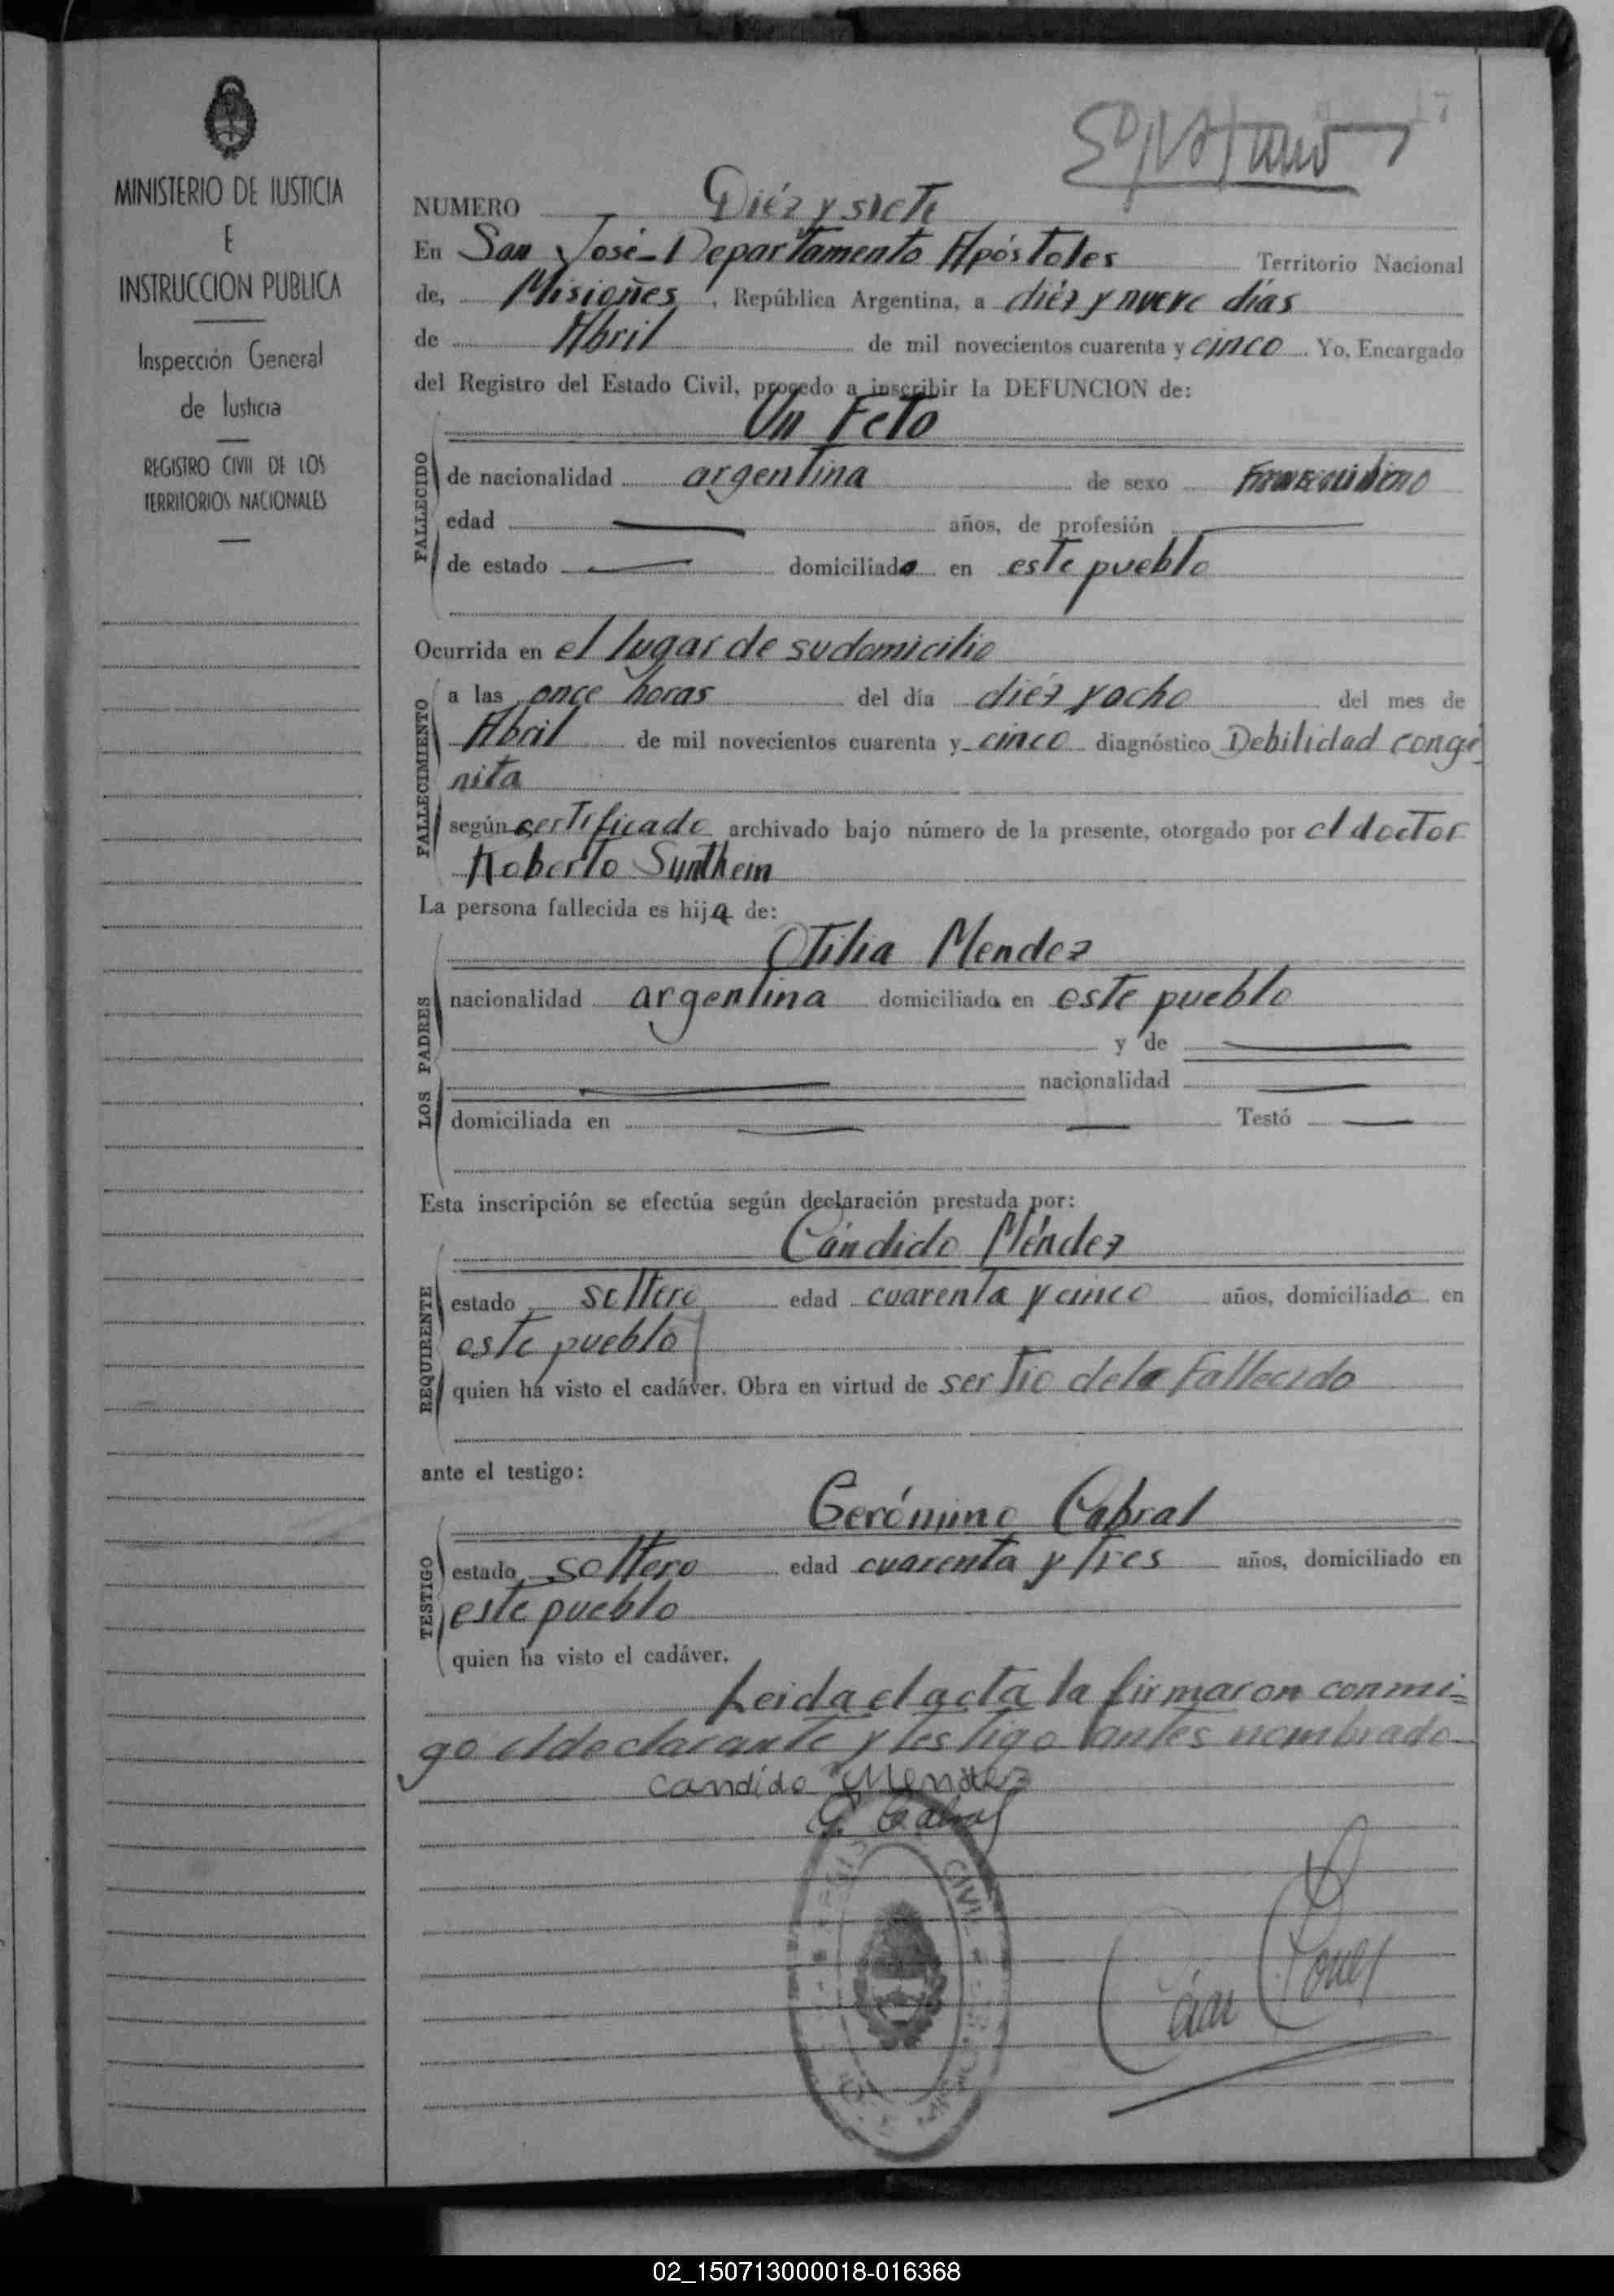 MINISTERIO DE JUSTICIA
E
INSTRUCCION PUBLICA
Inspección General
de Justicia
REGISTRO CIVIL DE LOS
TERRITORIOS NACIONALES
NUMERO Diéz y siete
En San José-Departamento Apóstoles Territorio Nacional
de, Misiones, República Argentina, a diéz y nueve días
de Abril de mil novecientos cuarenta y cinco. Yo, Encargado
del Registro del Estado Civil, procedo a inscribir la DEFUNCION de:
Un Feto
FALLECIDO
de nacionalidad argentina de sexo
edad — años, de profesión —
de estado — domiciliado en este pueblo
Ocurrida en el lugar de su domicilio
FALLECIMIENTO
a las once horas del día diéz y ocho del mes de
Abril de mil novecientos cuarenta y cinco diagnóstico Debilidad congé
nita
según certificado archivado bajo número de la presente, otorgado por el doctor
Roberto
La persona fallecida es hija de:
Otilia Mendez
LOS PADRES
nacionalidad argentina domiciliada en este pueblo
y de —
— nacionalidad —
domiciliada en — — Testó —
Esta inscripción se efectúa según declaración prestada por:
Cándido Méndez
REQUIRENTE
estado soltero edad cuarenta y cinco años, domiciliado en
este pueblo
quien ha visto el cadáver. Obra en virtud de ser tio dela Fallecido
ante el testigo:
Gerónimo Cabral
TESTIGO
estado soltero edad cuarenta y tres años, domiciliado en
este pueblo
quien ha visto el cadáver.
Leida el acta la firmaron conmi=
go el declarante y testigo antes nombrado
candido Mendez
G. Cabral
CIVIL
02_150713000018-016368